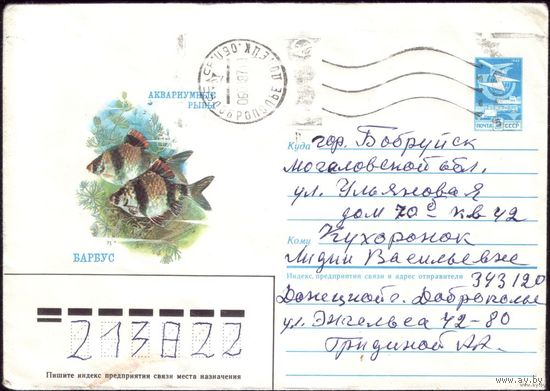 АКВАРИУМНЫЕ
РЫБЫ
БАРВУС
ПОЧТА СССР
Куда гор. Бобруйск
могиловской обл.
ул. Ульяновая
дом 70а кв 42
Кому Кухоронок
Лидии Васильевне
Индекс предприятия связи и адрес отправителя 343120
Донецкой о. Доброполье
ул. Энгельса 42-80
Гридиной А.А.
213822
Пишите индекс предприятия связи места назначения
www.ay.by